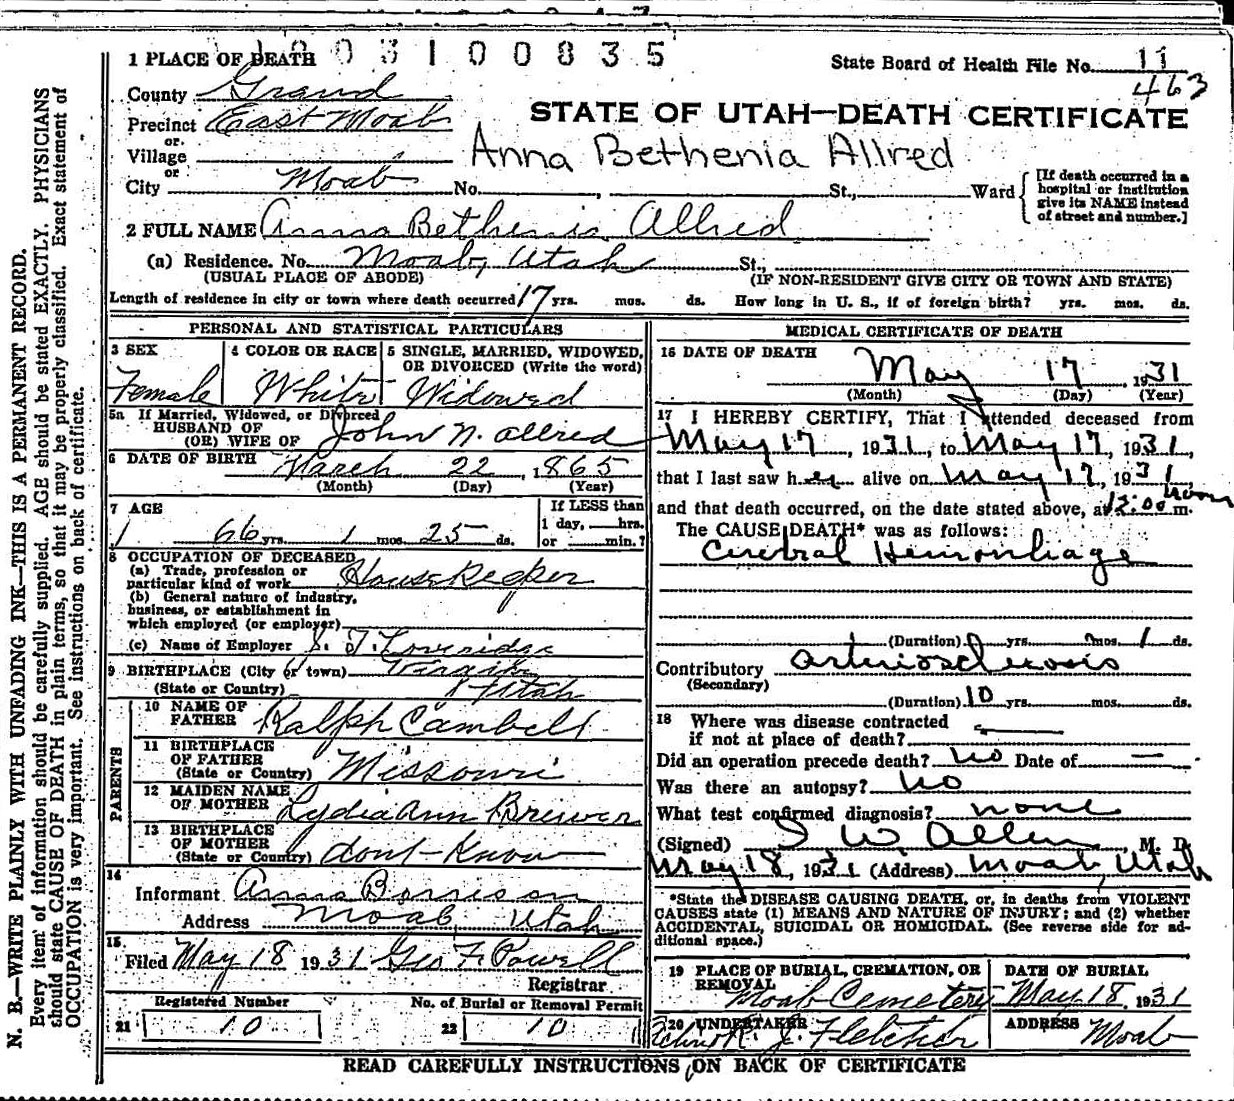 1 PLACE OF DEATH 1 9 0 3 1 0 0 8 3 5
State Board of Health File No. 11
463
County Grand
Precinct East Moab
or
Village
or
City Moab No. St., Ward
[If death occurred in a hospital or institution give its NAME instead of street and number.]
STATE OF UTAH—DEATH CERTIFICATE
Anna Bethenia Allred
2 FULL NAME Anna Bethenia Allred
(a) Residence. No. Moab, Utah St.,
(USUAL PLACE OF ABODE) (IF NON-RESIDENT GIVE CITY OR TOWN AND STATE)
Length of residence in city or town where death occurred 17 yrs. mos. ds. How long in U. S., if of foreign birth? yrs. mos. ds.
PERSONAL AND STATISTICAL PARTICULARS
3 SEX
Female
4 COLOR OR RACE
White
5 SINGLE, MARRIED, WIDOWED, OR DIVORCED (Write the word)
Widowed
5a If Married, Widowed, or Divorced
HUSBAND OF
(OR) WIFE OF John N. Allred
6 DATE OF BIRTH March 22, 1865
(Month) (Day) (Year)
7 AGE
66 yrs. 1 mos. 25 ds.
If LESS than
1 day, hrs.
or min.?
8 OCCUPATION OF DECEASED
(a) Trade, profession or
particular kind of work House Keeper
(b) General nature of industry,
business, or establishment in
which employed (or employer)
(c) Name of Employer
9 BIRTHPLACE (City or town)
(State or Country) Utah
PARENTS
10 NAME OF FATHER Ralph Cambell
11 BIRTHPLACE
OF FATHER
(State or Country) Missouri
12 MAIDEN NAME
OF MOTHER Lydia Ann Brewer
13 BIRTHPLACE
OF MOTHER
(State or Country) dont-Know
14
Informant Anna
Address Moab, Utah
15
Filed May 18 1931 Geo F. Powell
Registrar
Registered Number
21 10
No. of Burial or Removal Permit
22 10
MEDICAL CERTIFICATE OF DEATH
16 DATE OF DEATH
May 17, 1931
(Month) (Day) (Year)
17 I HEREBY CERTIFY, That I attended deceased from
May 17, 1931, to May 17, 1931,
that I last saw her alive on May 17, 1931
and that death occurred, on the date stated above, at 12:00 noon m.
The CAUSE DEATH* was as follows:
Cerebral Hemorrhage
(Duration) 0 yrs. mos. 1 ds.
Contributory
(Secondary) arteriosclerosis
(Duration) 10 yrs. mos. ds.
18 Where was disease contracted
if not at place of death?
Did an operation precede death? no Date of —
Was there an autopsy? no
What test confirmed diagnosis? none
(Signed) I W. Allen, M. D.
May 18, 1931 (Address) Moab, Utah
*State the DISEASE CAUSING DEATH, or, in deaths from VIOLENT
CAUSES state (1) MEANS AND NATURE OF INJURY; and (2) whether
ACCIDENTAL, SUICIDAL OR HOMICIDAL. (See reverse side for ad-
ditional space.)
19 PLACE OF BURIAL, CREMATION, OR
REMOVAL
Moab Cemetery
DATE OF BURIAL
May 18 1931
20 UNDERTAKER
R. J. Fletcher
ADDRESS Moab
READ CAREFULLY INSTRUCTIONS ON BACK OF CERTIFICATE
N. B.—WRITE PLAINLY WITH UNFADING INK—THIS IS A PERMANENT RECORD.
Every item of information should be carefully supplied. AGE should be stated EXACTLY. PHYSICIANS
should state CAUSE OF DEATH in plain terms, so that it may be properly classified. Exact statement of
OCCUPATION is very important. See instructions on back of certificate.